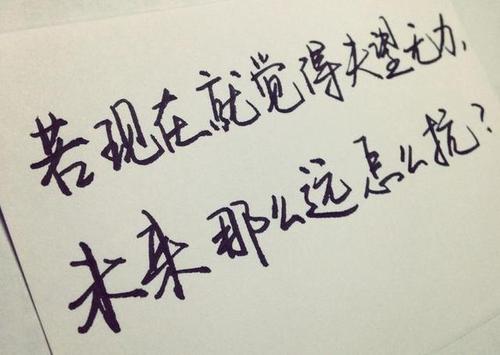 若现在就觉得失望无力、
未来那么远怎么抗?